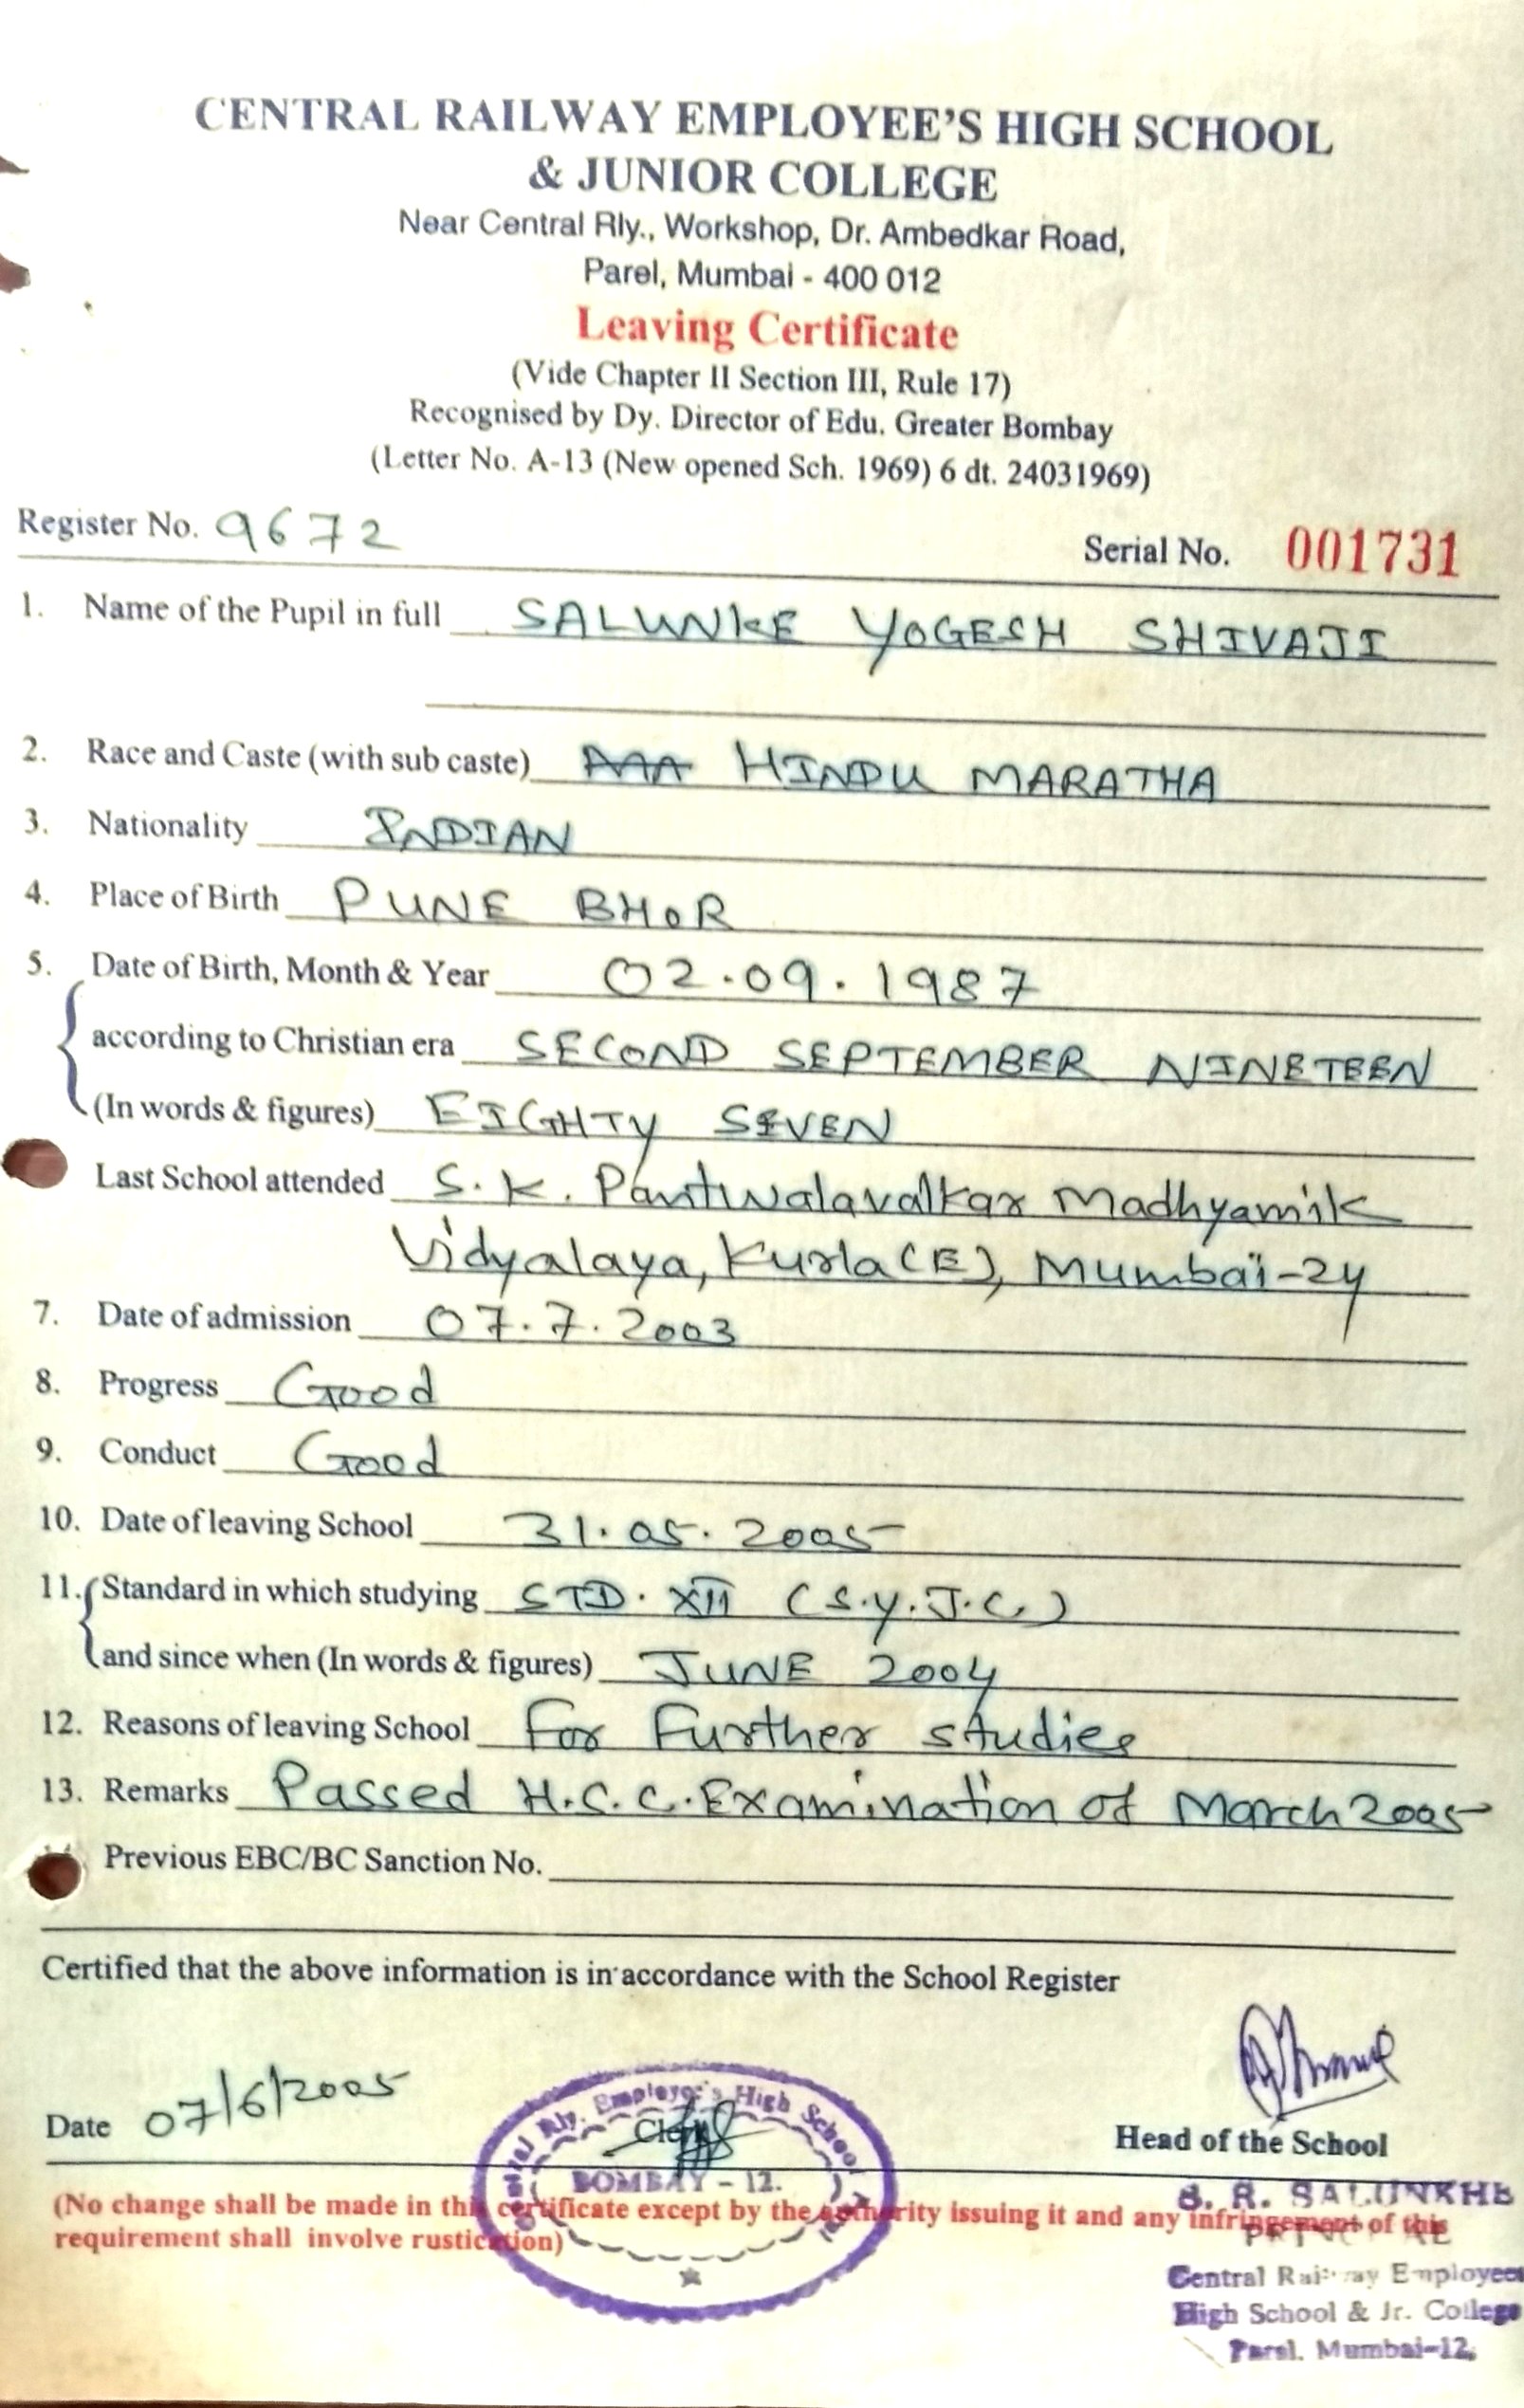 CENTRAL RAILWAY EMPLOYEE'S HIGH SCHOOL
& JUNIOR COLLEGE
Near Central Rly., Workshop, Dr. Ambedkar Road,
Parel, Mumbai - 400 012
Leaving Certificate
(Vide Chapter II Section III, Rule 17)
Recognised by Dy. Director of Edu. Greater Bombay
(Letter No. A-13 (New opened Sch. 1969) 6 dt. 24031969)
Register No. 9672
Serial No. 001731
1. Name of the Pupil in full SALUNKE YOGESH SHIVAJI
2. Race and Caste (with sub caste) HINDU MARATHA
3. Nationality INDIAN
4. Place of Birth PUNE BHOR
5. Date of Birth, Month & Year 02.09.1987
according to Christian era SECOND SEPTEMBER NINETEEN
(In words & figures) EIGHTY SEVEN
Last School attended S.K. Pantwalavalkar Madhyamik
Vidyalaya, Kurla (E), Mumbai-24
7. Date of admission 07.7.2003
8. Progress Good
9. Conduct Good
10. Date of leaving School 31.05.2005
11. Standard in which studying STD. XII (S.Y.J.C.)
and since when (In words & figures) JUNE 2004
12. Reasons of leaving School For Further studies
13. Remarks Passed H.S.C. Examination of March 2005
Previous EBC/BC Sanction No.
Certified that the above information is in accordance with the School Register
Date 07/6/2005
Clerk
Head of the School
Central Rly. Employee's High School
BOMBAY - 12.
(No change shall be made in this certificate except by the authority issuing it and any infringement of this
requirement shall involve rustication)
S. R. SALUNKHE
PRINCIPAL
Central Railway Employees
High School & Jr. College
Parel. Mumbai-12.